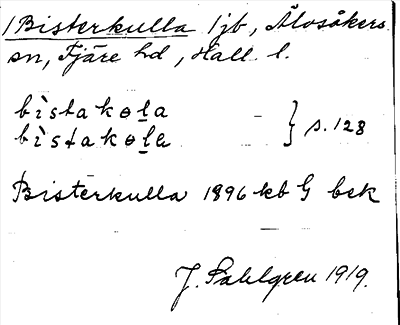 /Bisterkulla 1jb, Älvsåkers
sn, Fjäre hd, Hall. l.
bìstakɵla
bìstakɵla } s. 128
Bisterkulla 1896 kb G bek
J. Sahlgren 1919.